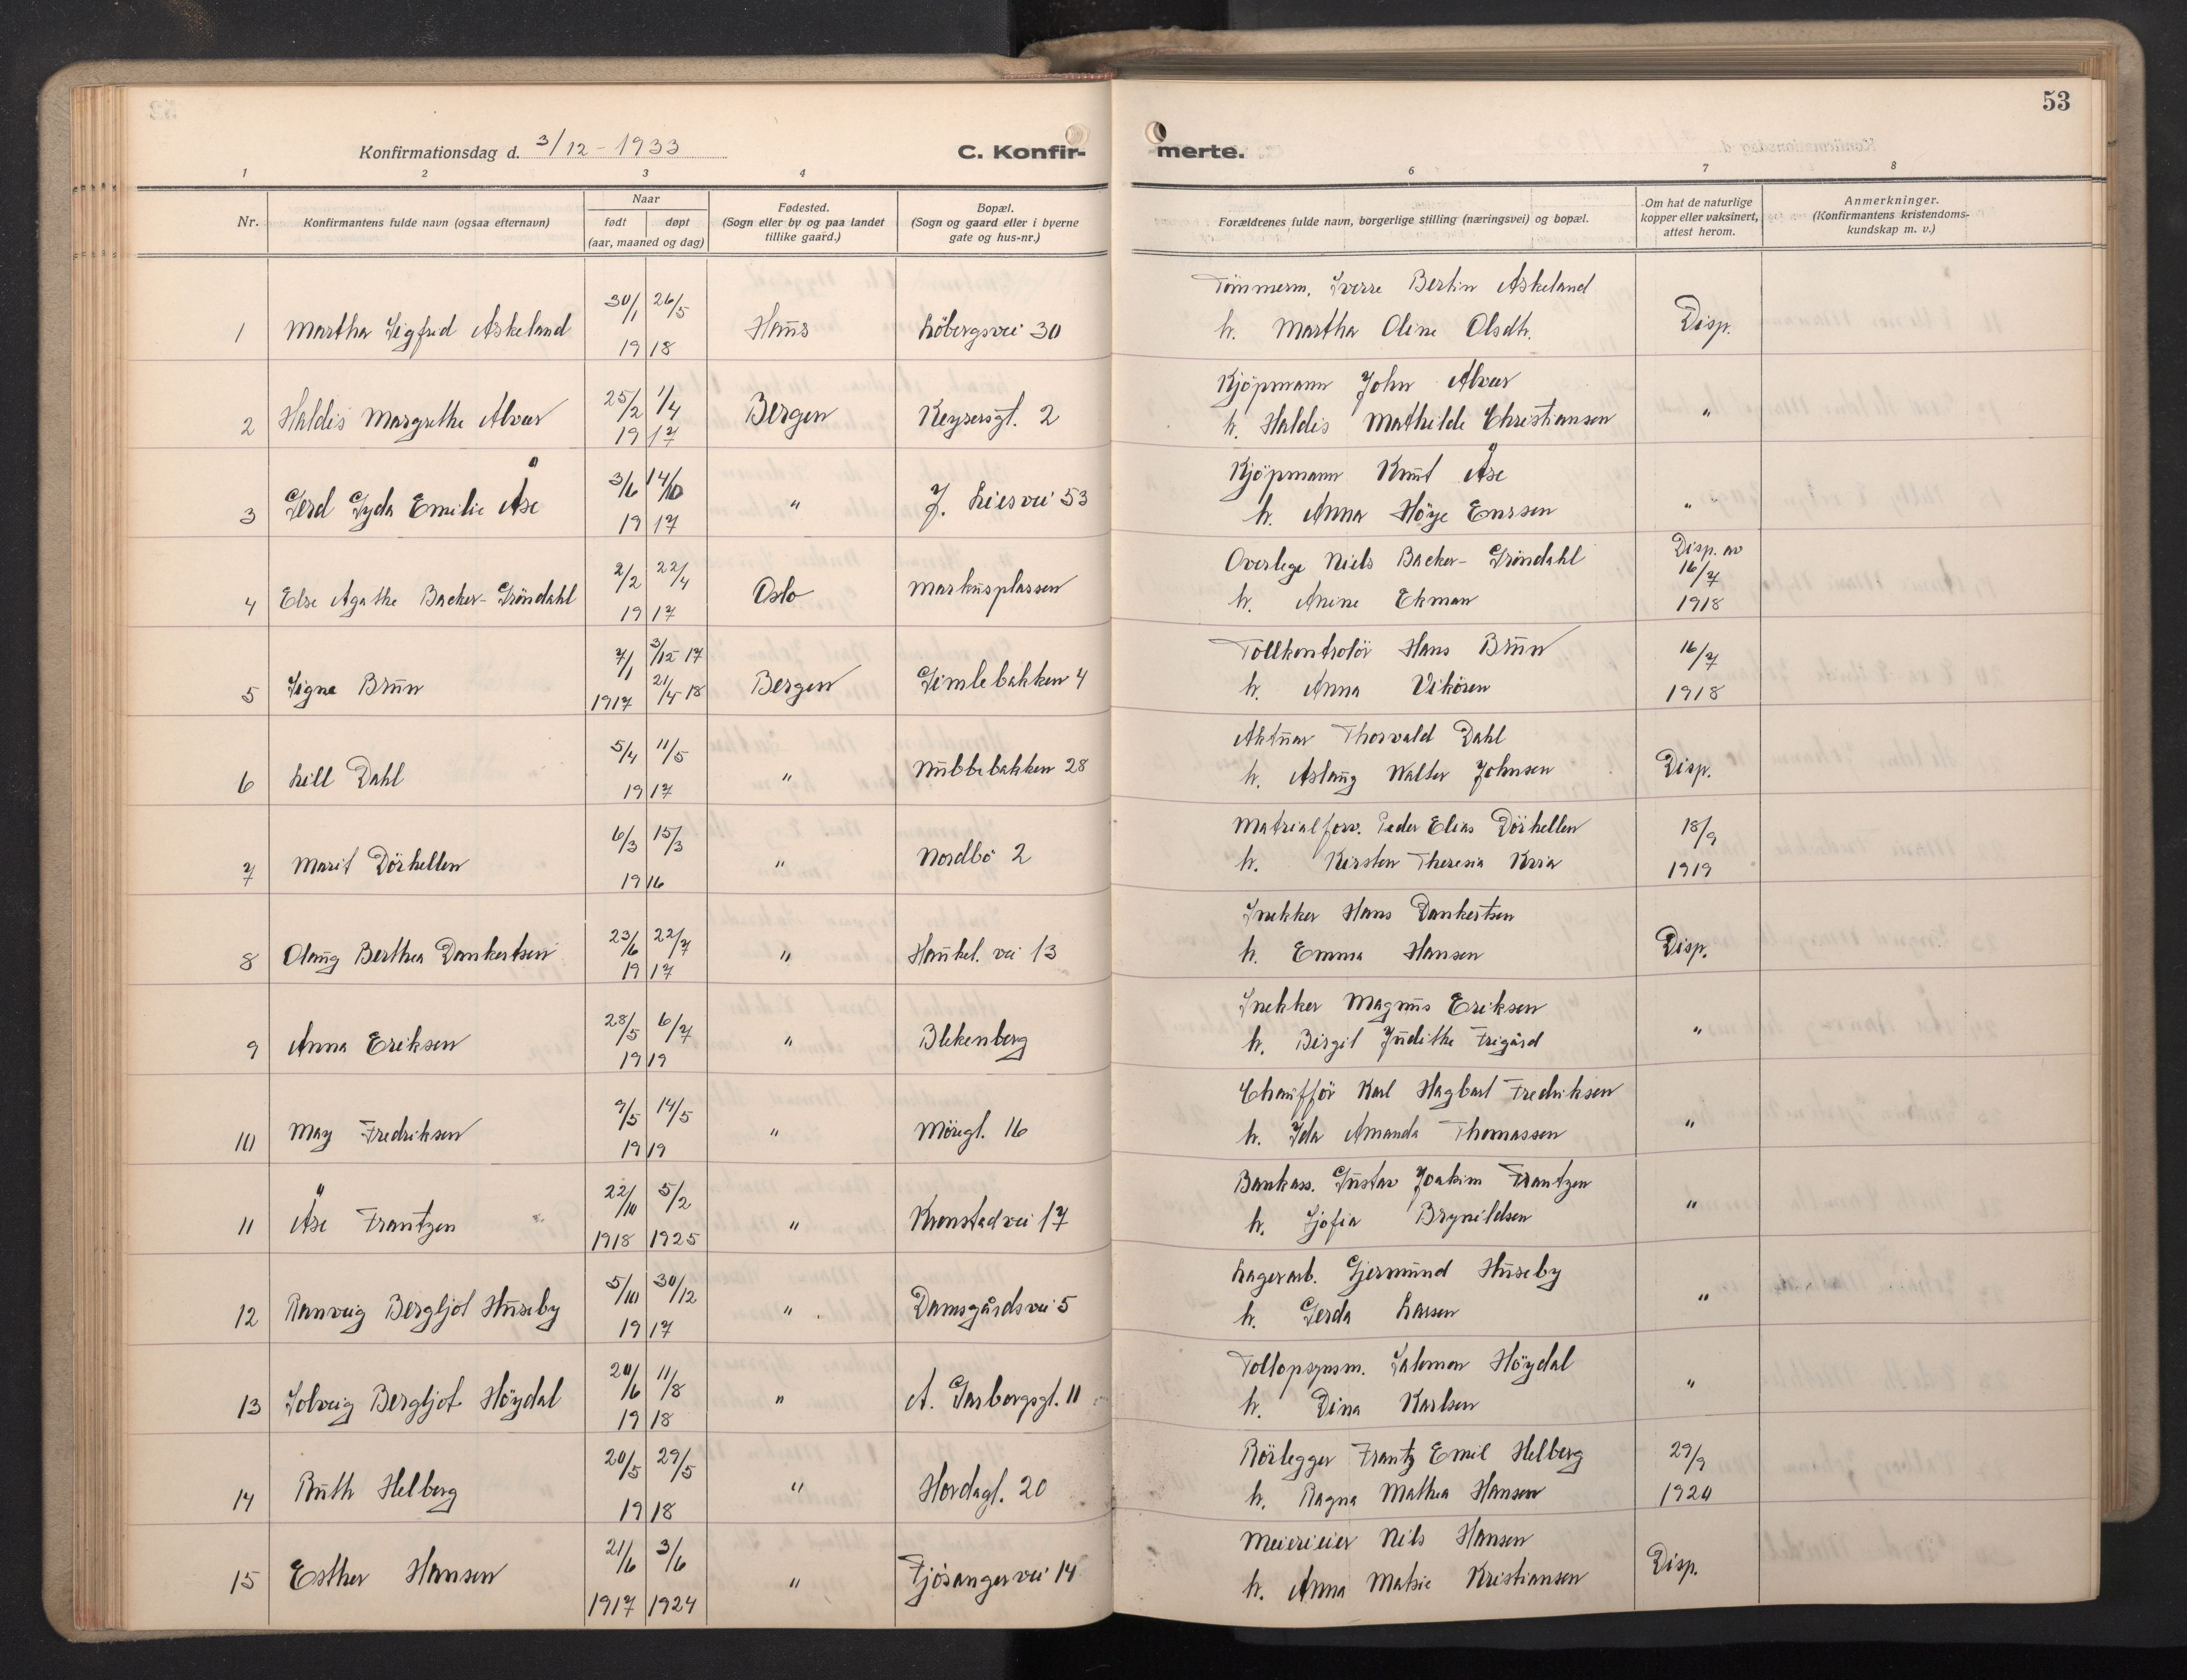 53
Konfirmationsdag d. 3/12 - 1933
C. Konfir-
merte.
1 2 3 4 6 7 8
Nr.
Konfirmantens fulde navn (ogsaa efternavn)
Naar
født døpt
(aar, maaned og dag)
Fødested.
(Sogn eller by og paa landet
tillike gaard.)
Bopæl.
(Sogn og gaard eller i byerne
gate og hus-nr.)
Forældrenes fulde navn, borgerlige stilling (næringsvei) og bopæl.
Om hat de naturlige
kopper eller vaksinert,
attest herom.
Anmerkninger.
(Konfirmantens kristendoms-
kundskap m. v.)
1 Martha Sigfrid Askeland 30/1 26/5 1918 Haus Løbergsvei 30
Tømmerm. Sverre Bertin Askeland
h. Martha Oline Olsdtr. Disp.
2 Haldis Margrethe Alvær 25/2 1/4 1917 Bergen Keysersgt. 2
Kjöpmann John Alvær
h. Haldis Mathilde Christiansen "
3 Gerd Gyda Emilie Åse 3/6 14/10 1917 " J. Liesvei 53
Kjöpmann Knut Åse
h. Anna Höye "
4 Else Agathe Backer-Gröndahl 2/2 22/4 1917 Oslo Markusplassen
Overlege Niels Backer-Gröndahl
h. Anine Ekman
Disp. av
16/7
1918
5 Signe Brun 7/1 1917 3/12 17 21/4 18 Bergen Gimlebakken 4
Tollkontrolör Hans Brun
h. Anna Vikören
16/7
1918
6 Lill Dahl 5/4 11/5 1917 " Nubbebakken 28
Aktuar Thorvald Dahl
h. Aslaug Walter Johnsen Disp.
7 Marit Dörhellen 6/3 15/3 1916 " Nordbö 2
Matrialforv. Peder Elias Dörhellen
h. Kirsten Theresia
18/9
1919
8 Olaug Berthea Dankertsen 23/6 22/7 1917 " Haukel. vei 13
Snekker Hans Dankertsen
h. Emma Hansen Disp.
9 Anna Eriksen 28/5 6/7 1919 " Blekenberg
Snekker Magnus Eriksen
h. Birgit Judithe Frigård "
10 May Fredriksen 9/5 14/5 1919 " Möregt. 16
Chaufför Karl Hagbart Fredriksen
h. Ida Amanda Thomassen "
11 Åse Frantzen 22/10 1918 5/2 1925 " Kronstadvei 17
Bankass. Gustav Joakim Frantzen
h. Sjofia Brynildsen "
12 Ranveig Bergljot Huseby 5/10 30/12 1917 " Damsgårdsvei 5
Lagerarb. Gjermund Huseby
h. Gerda Larsen "
13 Solveig Bergljot Höydal 20/6 11/8 1918 " A. Garborgsgt. 11
Tollopsynsm. Salomon Höydal
h. Dina Karlsen "
14 Ruth Helberg 20/5 29/5 1918 " Hordagt. 20
Rörlegger Frantz Emil Helberg
h. Ragna Mathea Hansen
29/9
1920
15 Esther Hansen 21/6 1917 3/6 1924 " Fjösangervei 14
Meierieier Nils Hansen
h. Anna Matsie Kristiansen Disp.